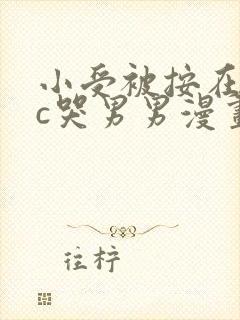 小受被按在
c哭男男漫畫
往柠